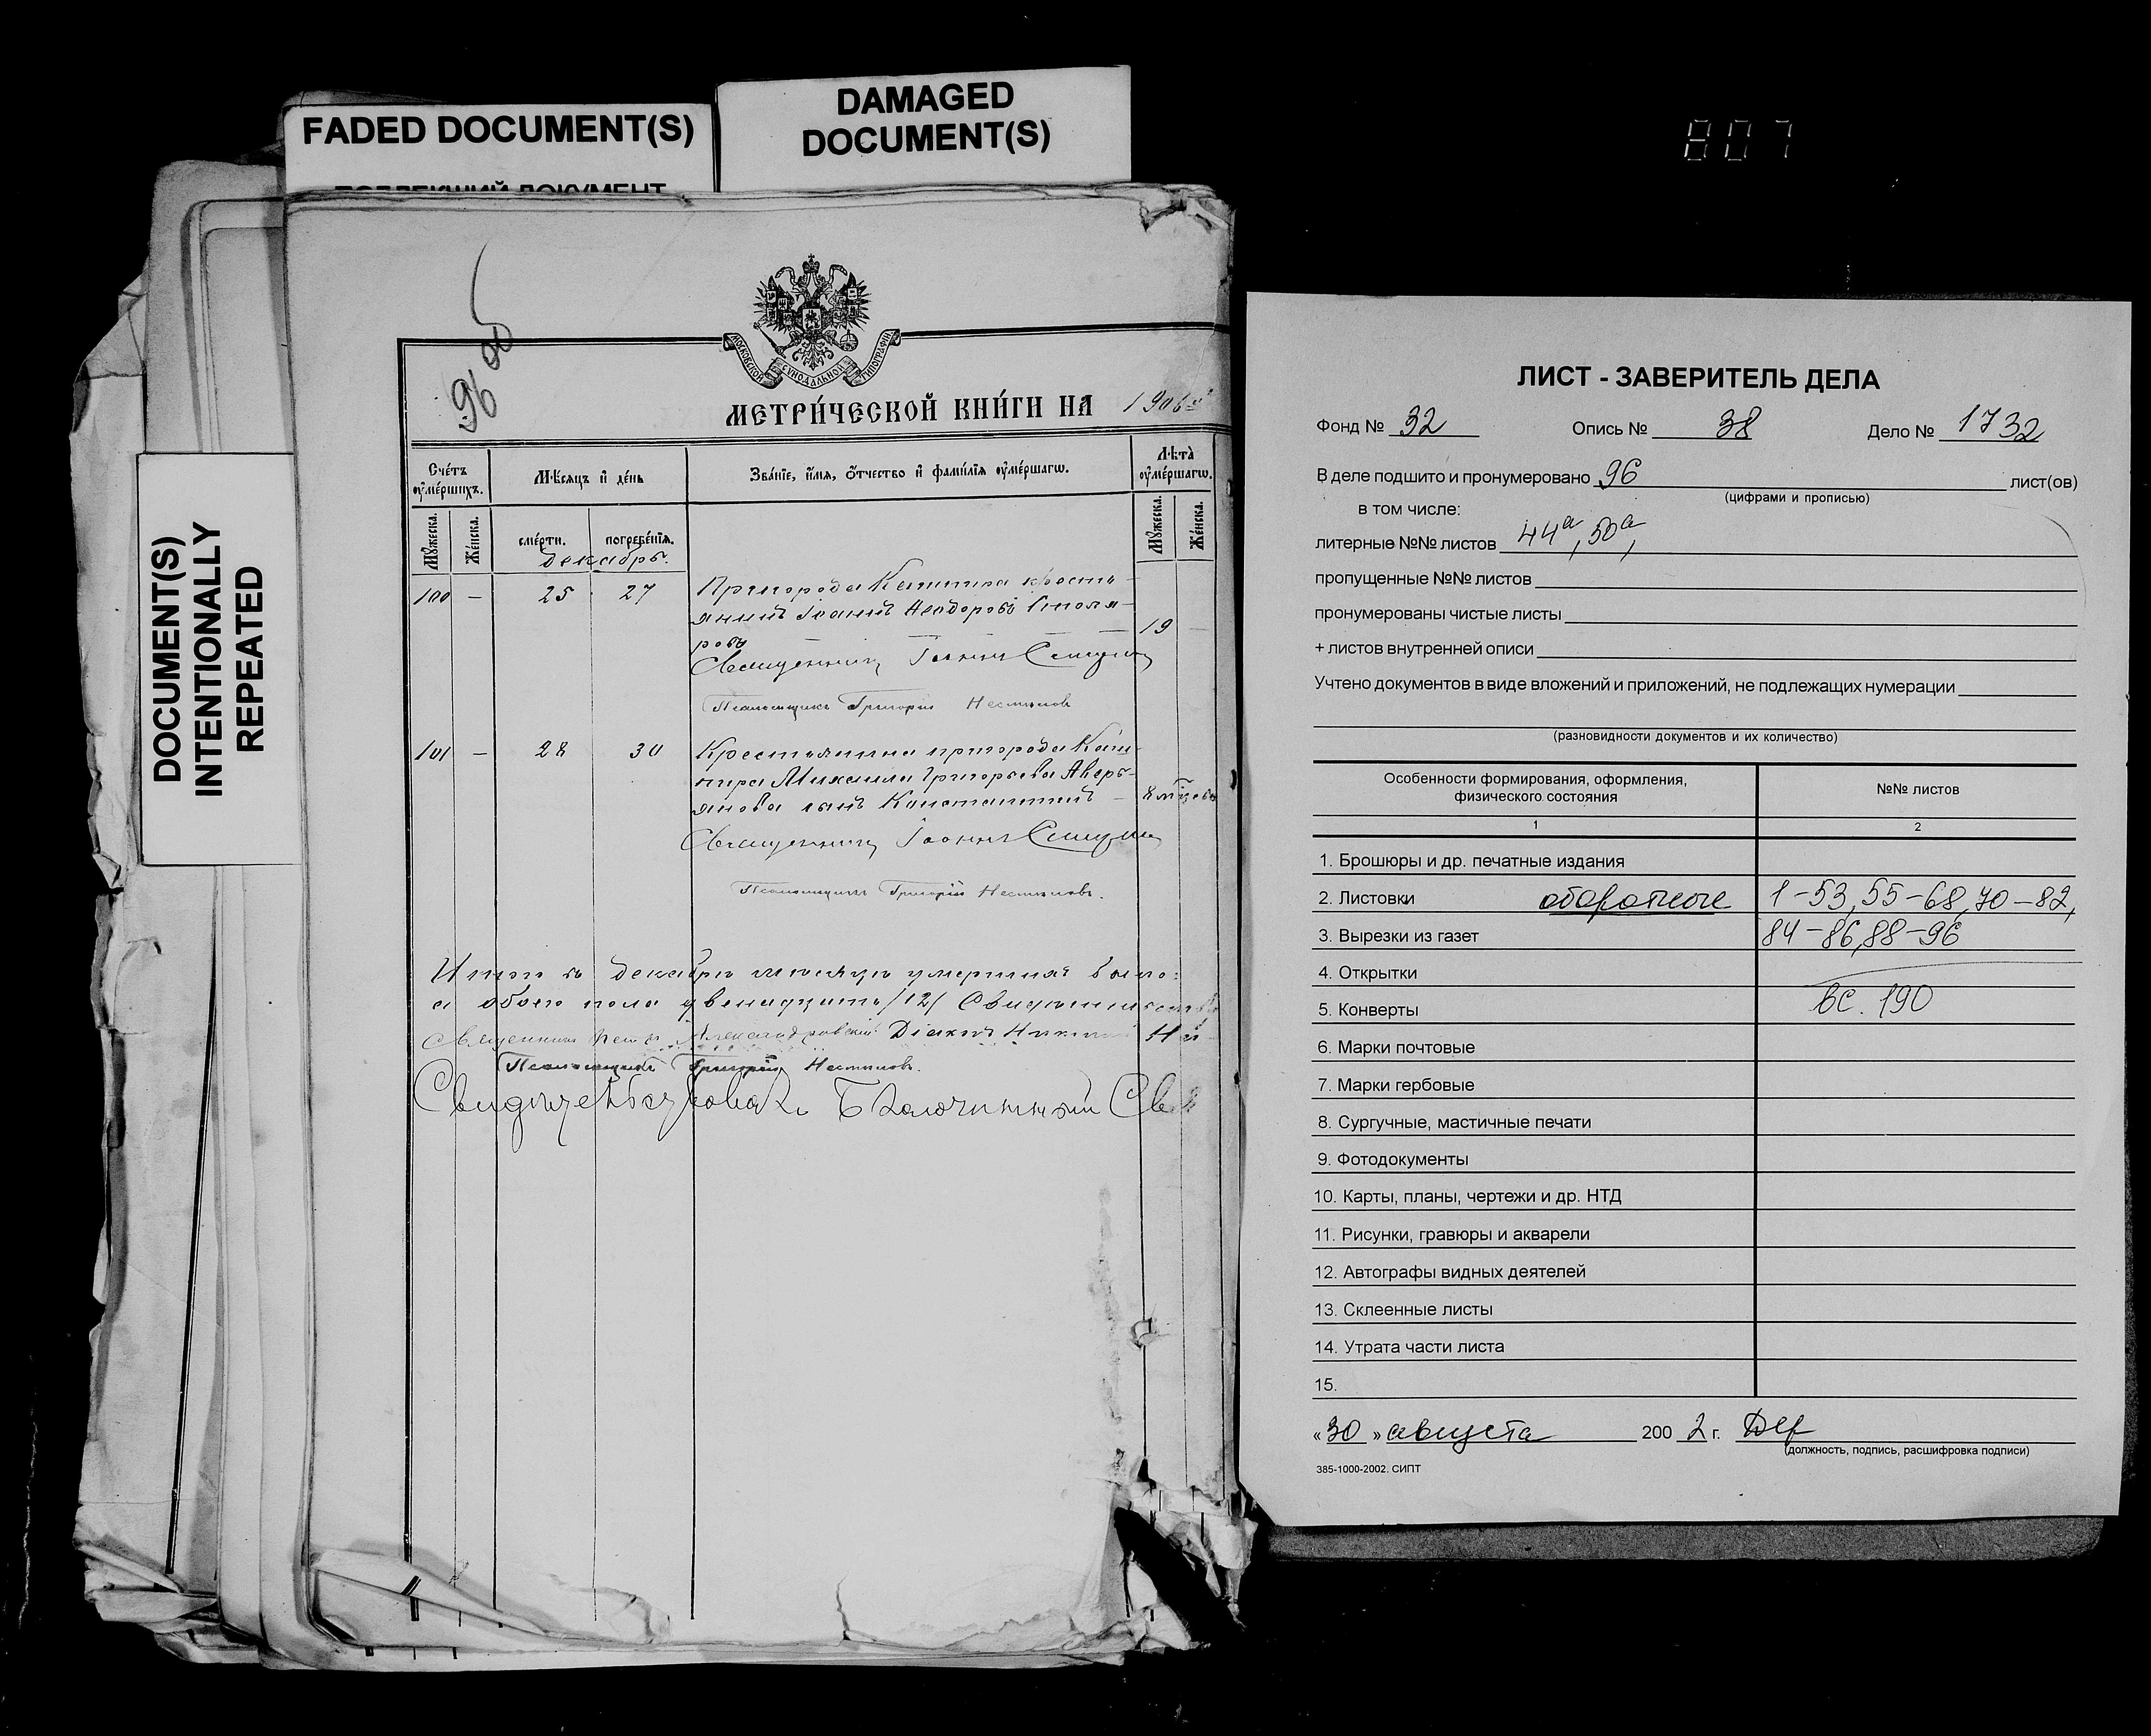 FADED DOCUMENT(S)
DAMAGED
DOCUMENT(S)
DOCUMENT(S)
INTENTIONALLY
REPEATED
807
96 об
МОСКОВСКОЙ СѴНОДАЛЬНОЙ ТИПОГРАФІИ
МЕТРИ́ЧЕСКОЙ КНИ́ГИ НА 1906
Сче́тъ ᲂу҆ме́ршихъ.
Мѣ́сяцъ и҆ де́нь
Зва́нїе, и҆́мѧ, ѻ҆́тчество и҆ фами́лїѧ ᲂу҆ме́ршагѡ.
Лѣ́та ᲂу҆ме́ршагѡ.
Мꙋ́жеска.
Же́нска.
сме́рти.
погребе́нїѧ.
Мꙋ́жеска.
Же́нска.
Декабрь.
100 – 25 27 Пригорода Кашпира кресть-
янинъ Іоаннъ Неодоровъ Столя-
ровъ – 19 –
Священникъ Іоаннъ
Псаломщикъ Григорій
101 – 28 30 Крестьянина пригорода Каш-
пира Михаила Григорьева Аверь-
янова сынъ Константинъ – 8 мѣсяцевъ
Священникъ Іоаннъ
Псаломщикъ Григорій
Итого въ декабрѣ мѣсяцѣ умершихъ было:
а обоего пола двенадцать /12/
Священникъ Петръ Александровскій Діаконъ
Псаломщикъ Григорій
Свидѣтельствовалъ Благочинный Св
ЛИСТ - ЗАВЕРИТЕЛЬ ДЕЛА
Фонд № 32 Опись № 38 Дело № 1732
В деле подшито и пронумеровано 96 лист(ов)
(цифрами и прописью)
в том числе:
литерные №№ листов 44а, 50а,
пропущенные №№ листов
пронумерованы чистые листы
+ листов внутренней описи
Учтено документов в виде вложений и приложений, не подлежащих нумерации
(разновидности документов и их количество)
Особенности формирования, оформления,
физического состояния
№№ листов
1 2
1. Брошюры и др. печатные издания
2. Листовки оборотные 1-53, 55-68, 70-82,
3. Вырезки из газет 84-86, 88-96
4. Открытки
5. Конверты вс. 190
6. Марки почтовые
7. Марки гербовые
8. Сургучные, мастичные печати
9. Фотодокументы
10. Карты, планы, чертежи и др. НТД
11. Рисунки, гравюры и акварели
12. Автографы видных деятелей
13. Склеенные листы
14. Утрата части листа
15.
« 30 » августа 200 2 г.
(должность, подпись, расшифровка подписи)
385-1000-2002. СИПТ